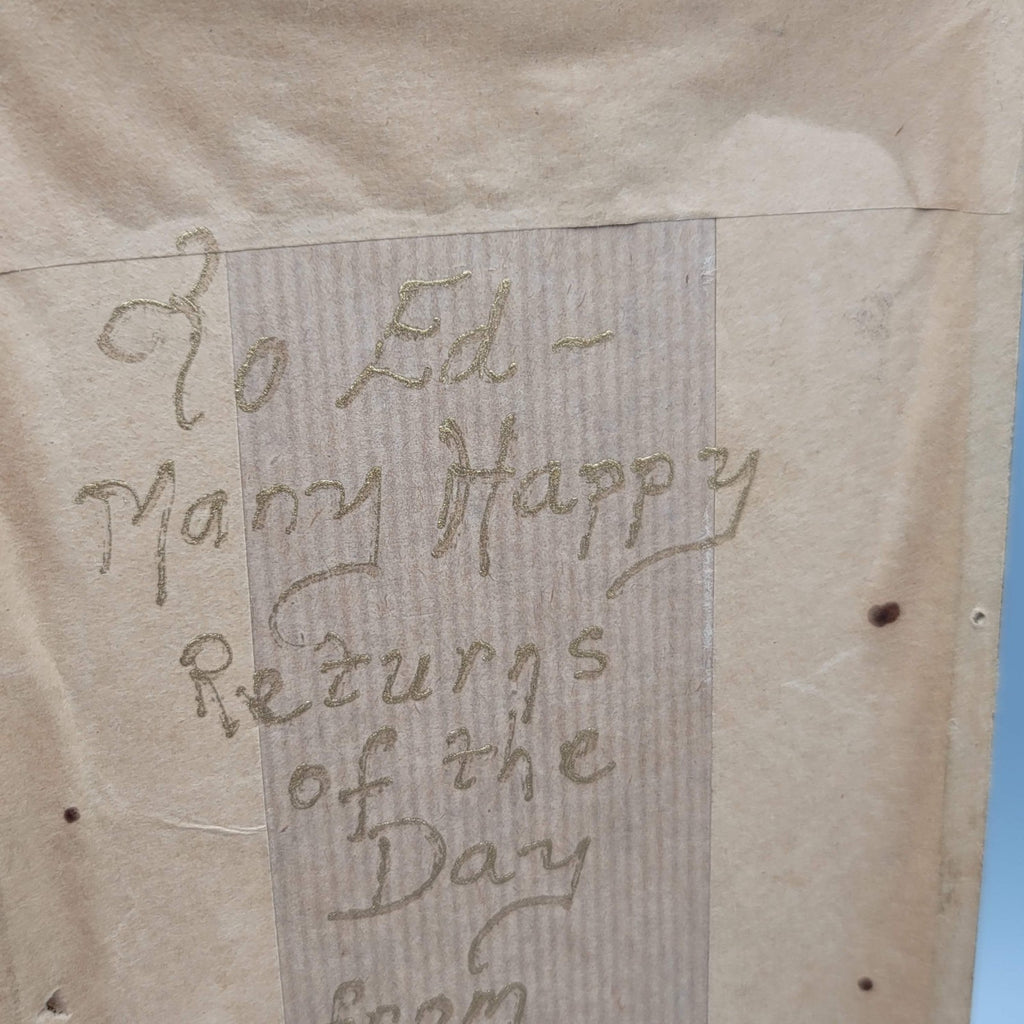 To Ed -
Many Happy
Returns
of the
Day
from